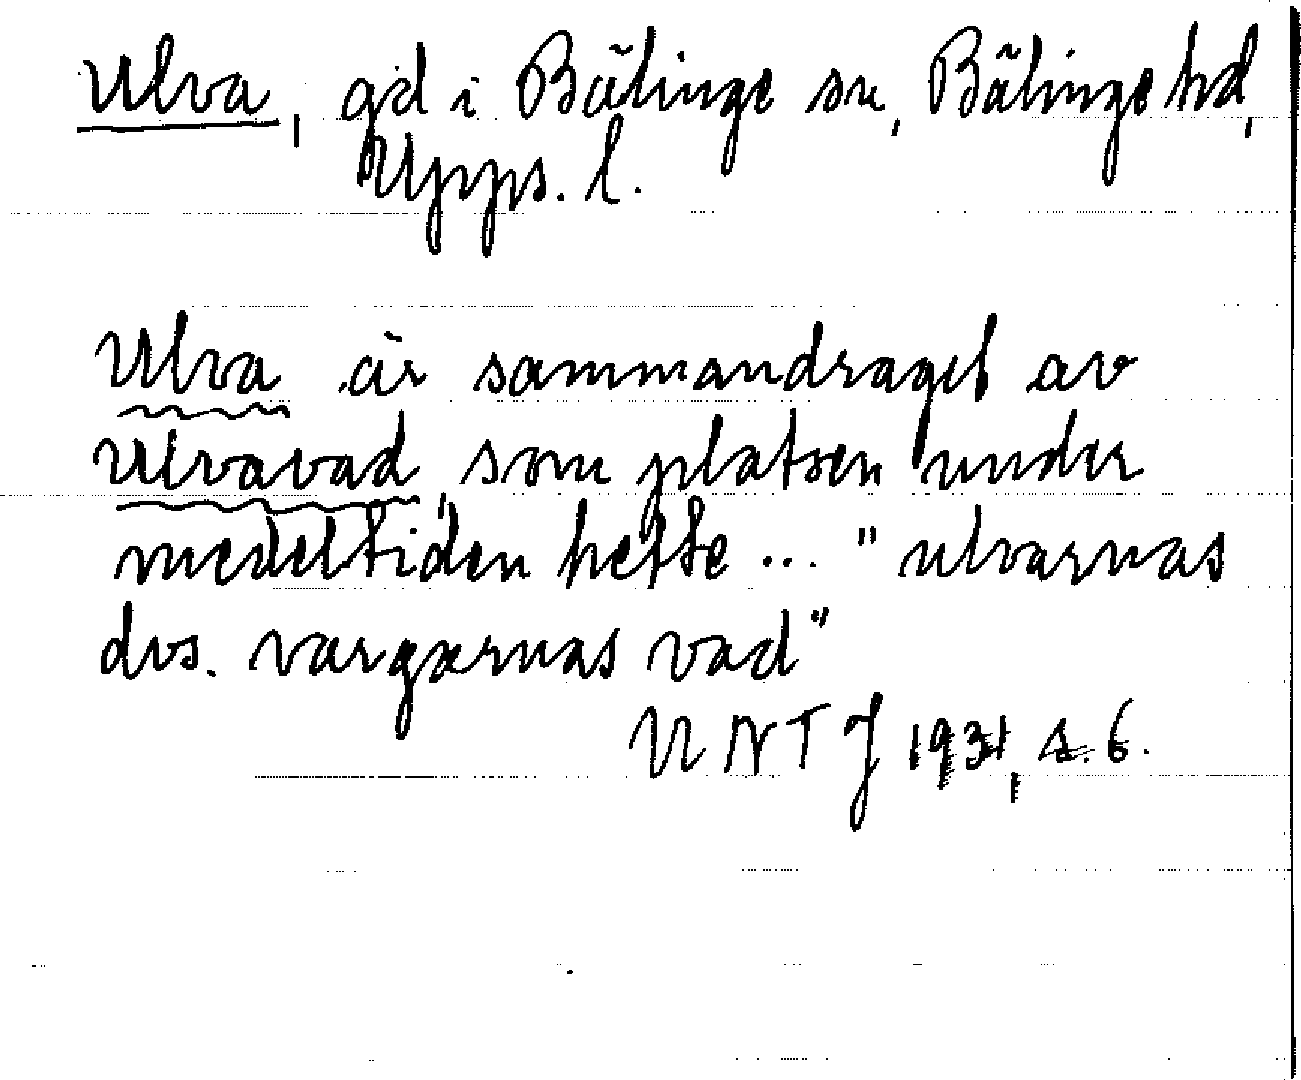 Ulva, gd i Bälinge sn, Bälinge hd,
Upps. l.
Ulva är sammandraget av
Ulvavad, som platsen under
medeltiden hette ... "ulvarnas
dvs. vargarnas vad"
UNT J 1931, s. 6.